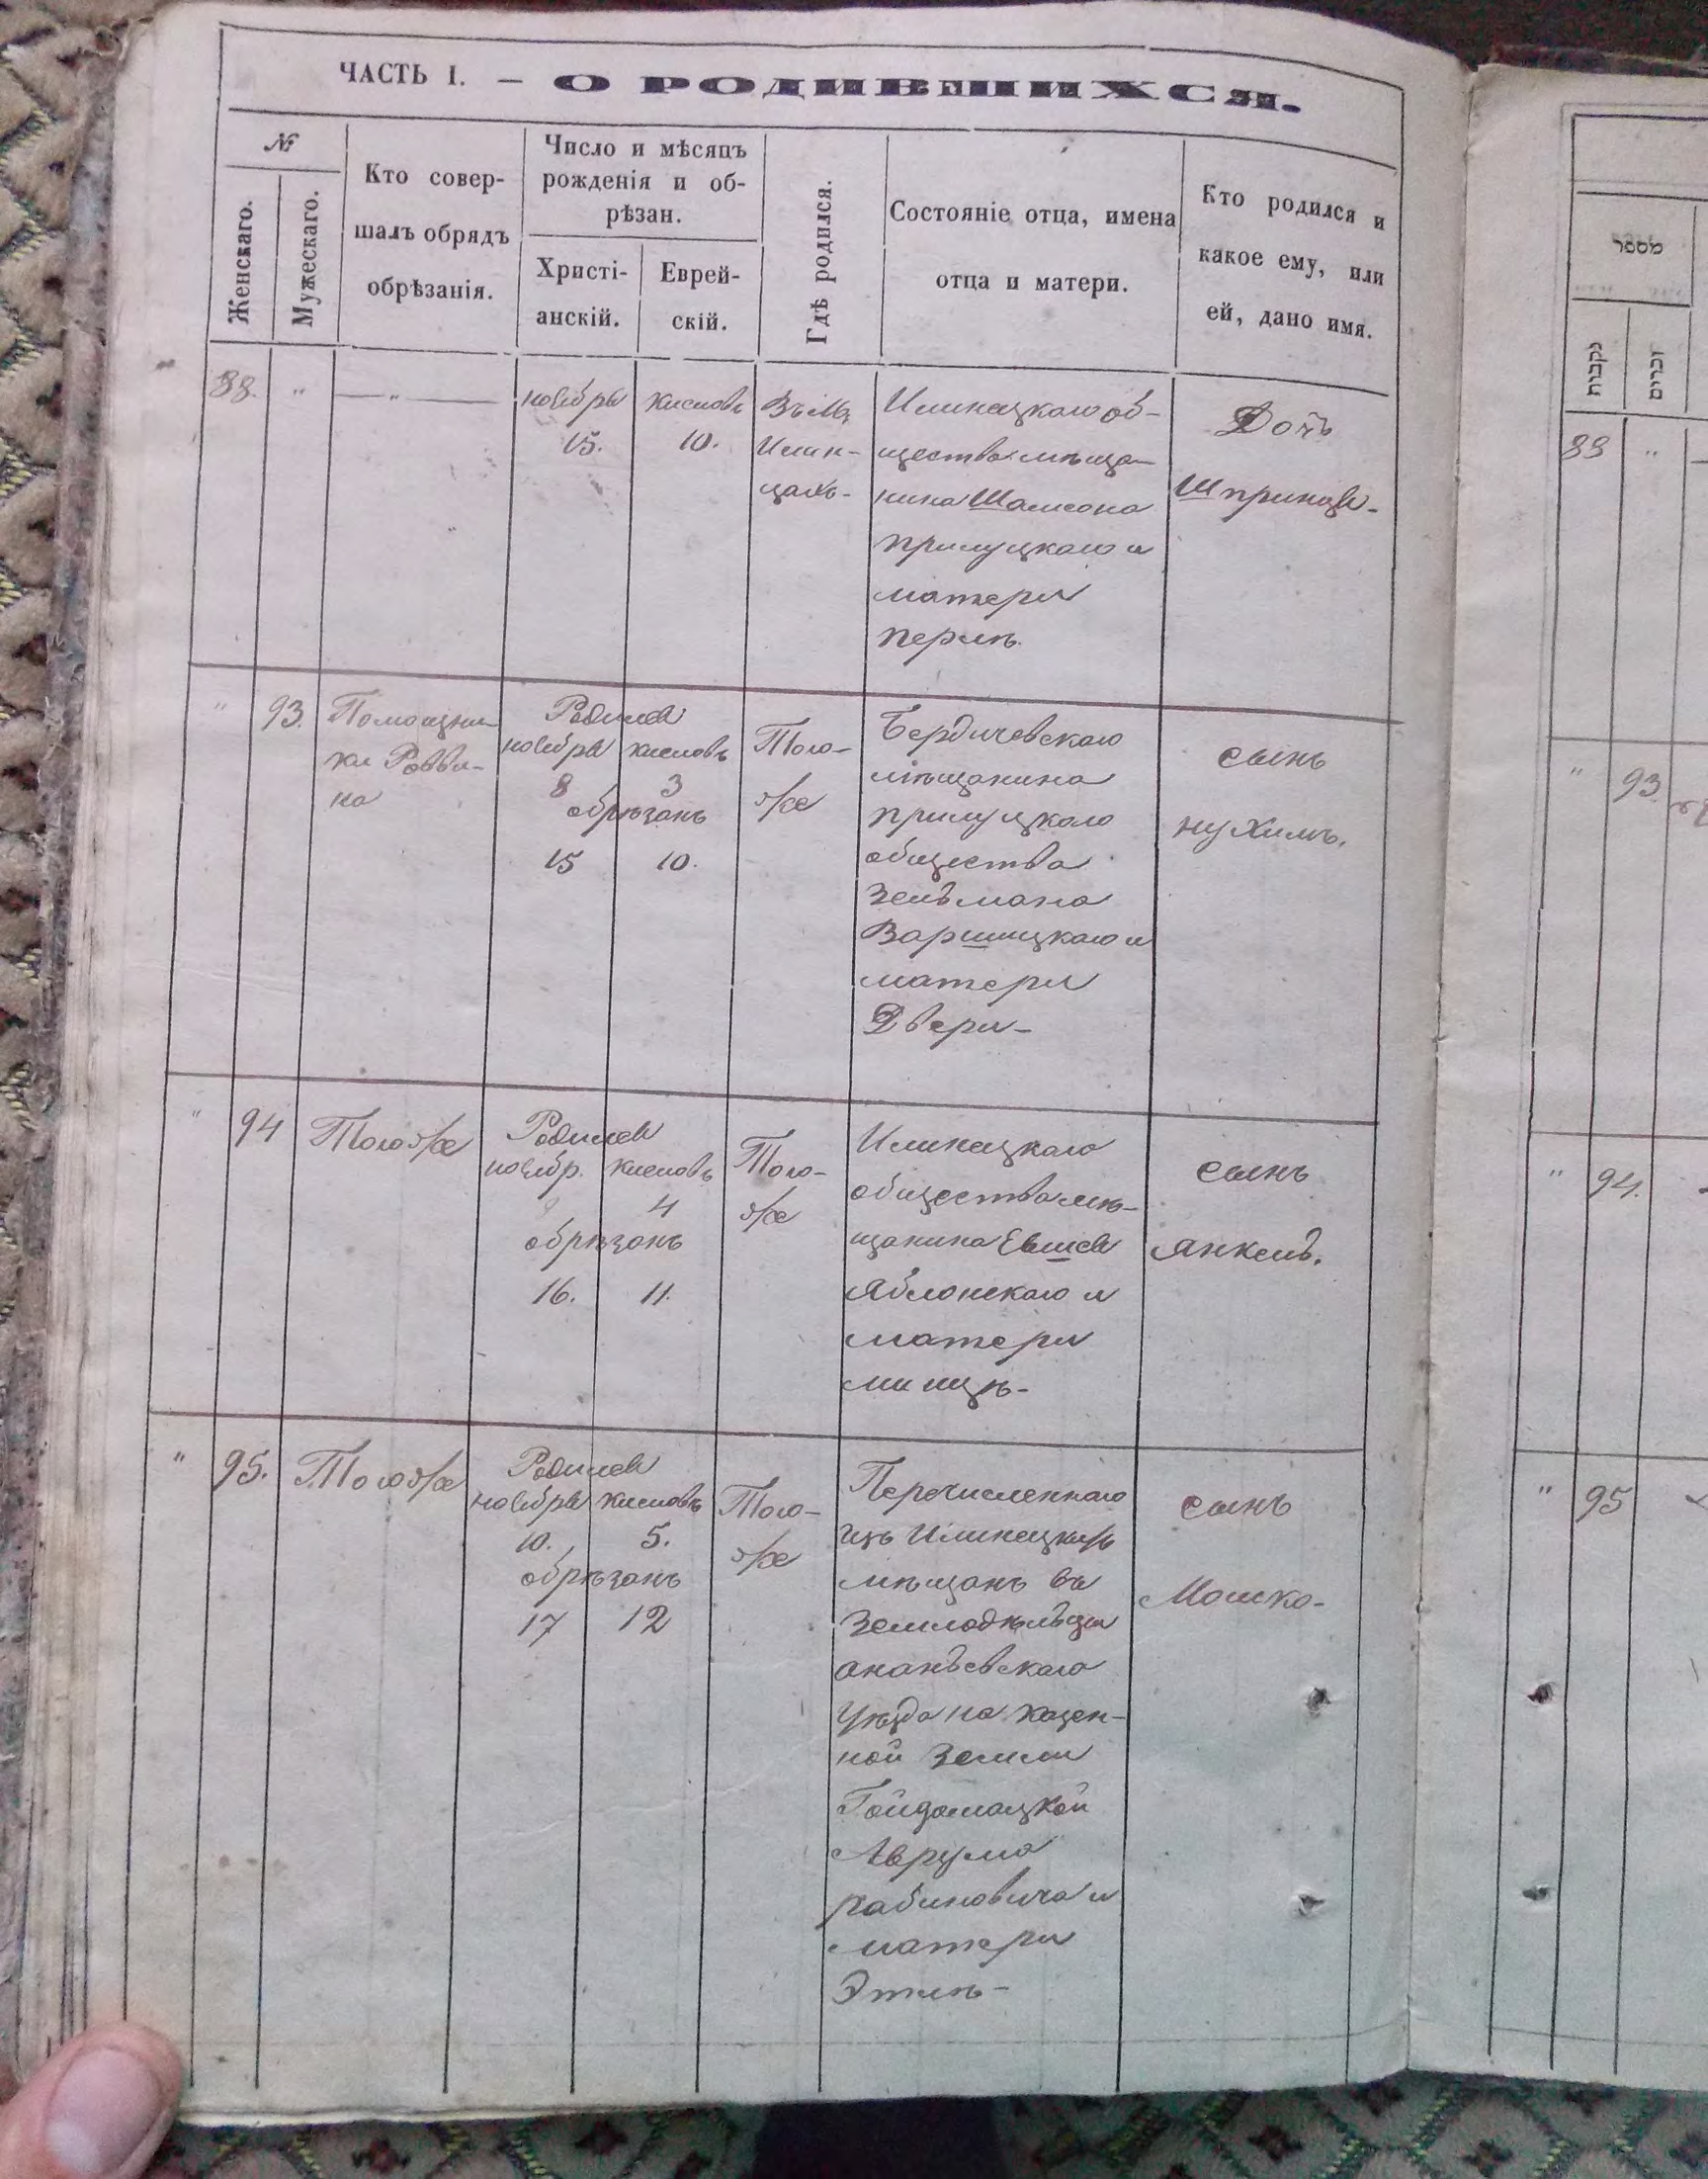 ЧАСТЬ I. — О РОДИВШИХСЯ.
№
Женскаго.
Мужескаго.
Кто совер-
шалъ обрядъ
обрѣзанія.
Число и мѣсяцъ
рожденія и об-
рѣзан.
Христі-
анскій.
Еврей-
скій.
Гдѣ родился.
Состояніе отца, имена
отца и матери.
Кто родился и
какое ему, или
ей, дано имя.
88. " — " —
ноября
15.
кислов
10.
Въ М.
Илин-
цахъ-
Илинецкаго об-
щества мѣща-
нина Шамсона
прилуцкаго и
матери
перлѣ.
Дочь
Шпринця-
" 93.
Помощни-
ка Равви-
на
Родился
ноября кисловъ
8 3
обрѣзанъ
15 10.
Того-
же
Бердичевскаго
мѣщанина
прилуцкаго
общества
Зельмана
Варшицкаго и
матери
Двери-
сынъ
нухимъ.
" 94 Тогоже
Родился
ноябр. кисловъ
4
обрѣзанъ
16. 11.
Того-
же
Илинецкаго
общества мѣ-
щанина Евшея
Яблонскаго и
матери
сынъ
Янкель.
" 95. Тогоже
Родился
ноября кисловъ
10. 5.
обрѣзанъ
17 12
Того-
же
Перечисленнаго
изъ Илинецкихъ
мѣщанъ въ
Земледѣльцы
ананьевскаго
уѣзда на казен-
ной земли
Гайдамацкой
Аврума
рабиновича и
матери
Этлѣ-
сынъ
Мошко-
מספר
נקבות
זכרים
88 "
" 93.
" 94.
" 95